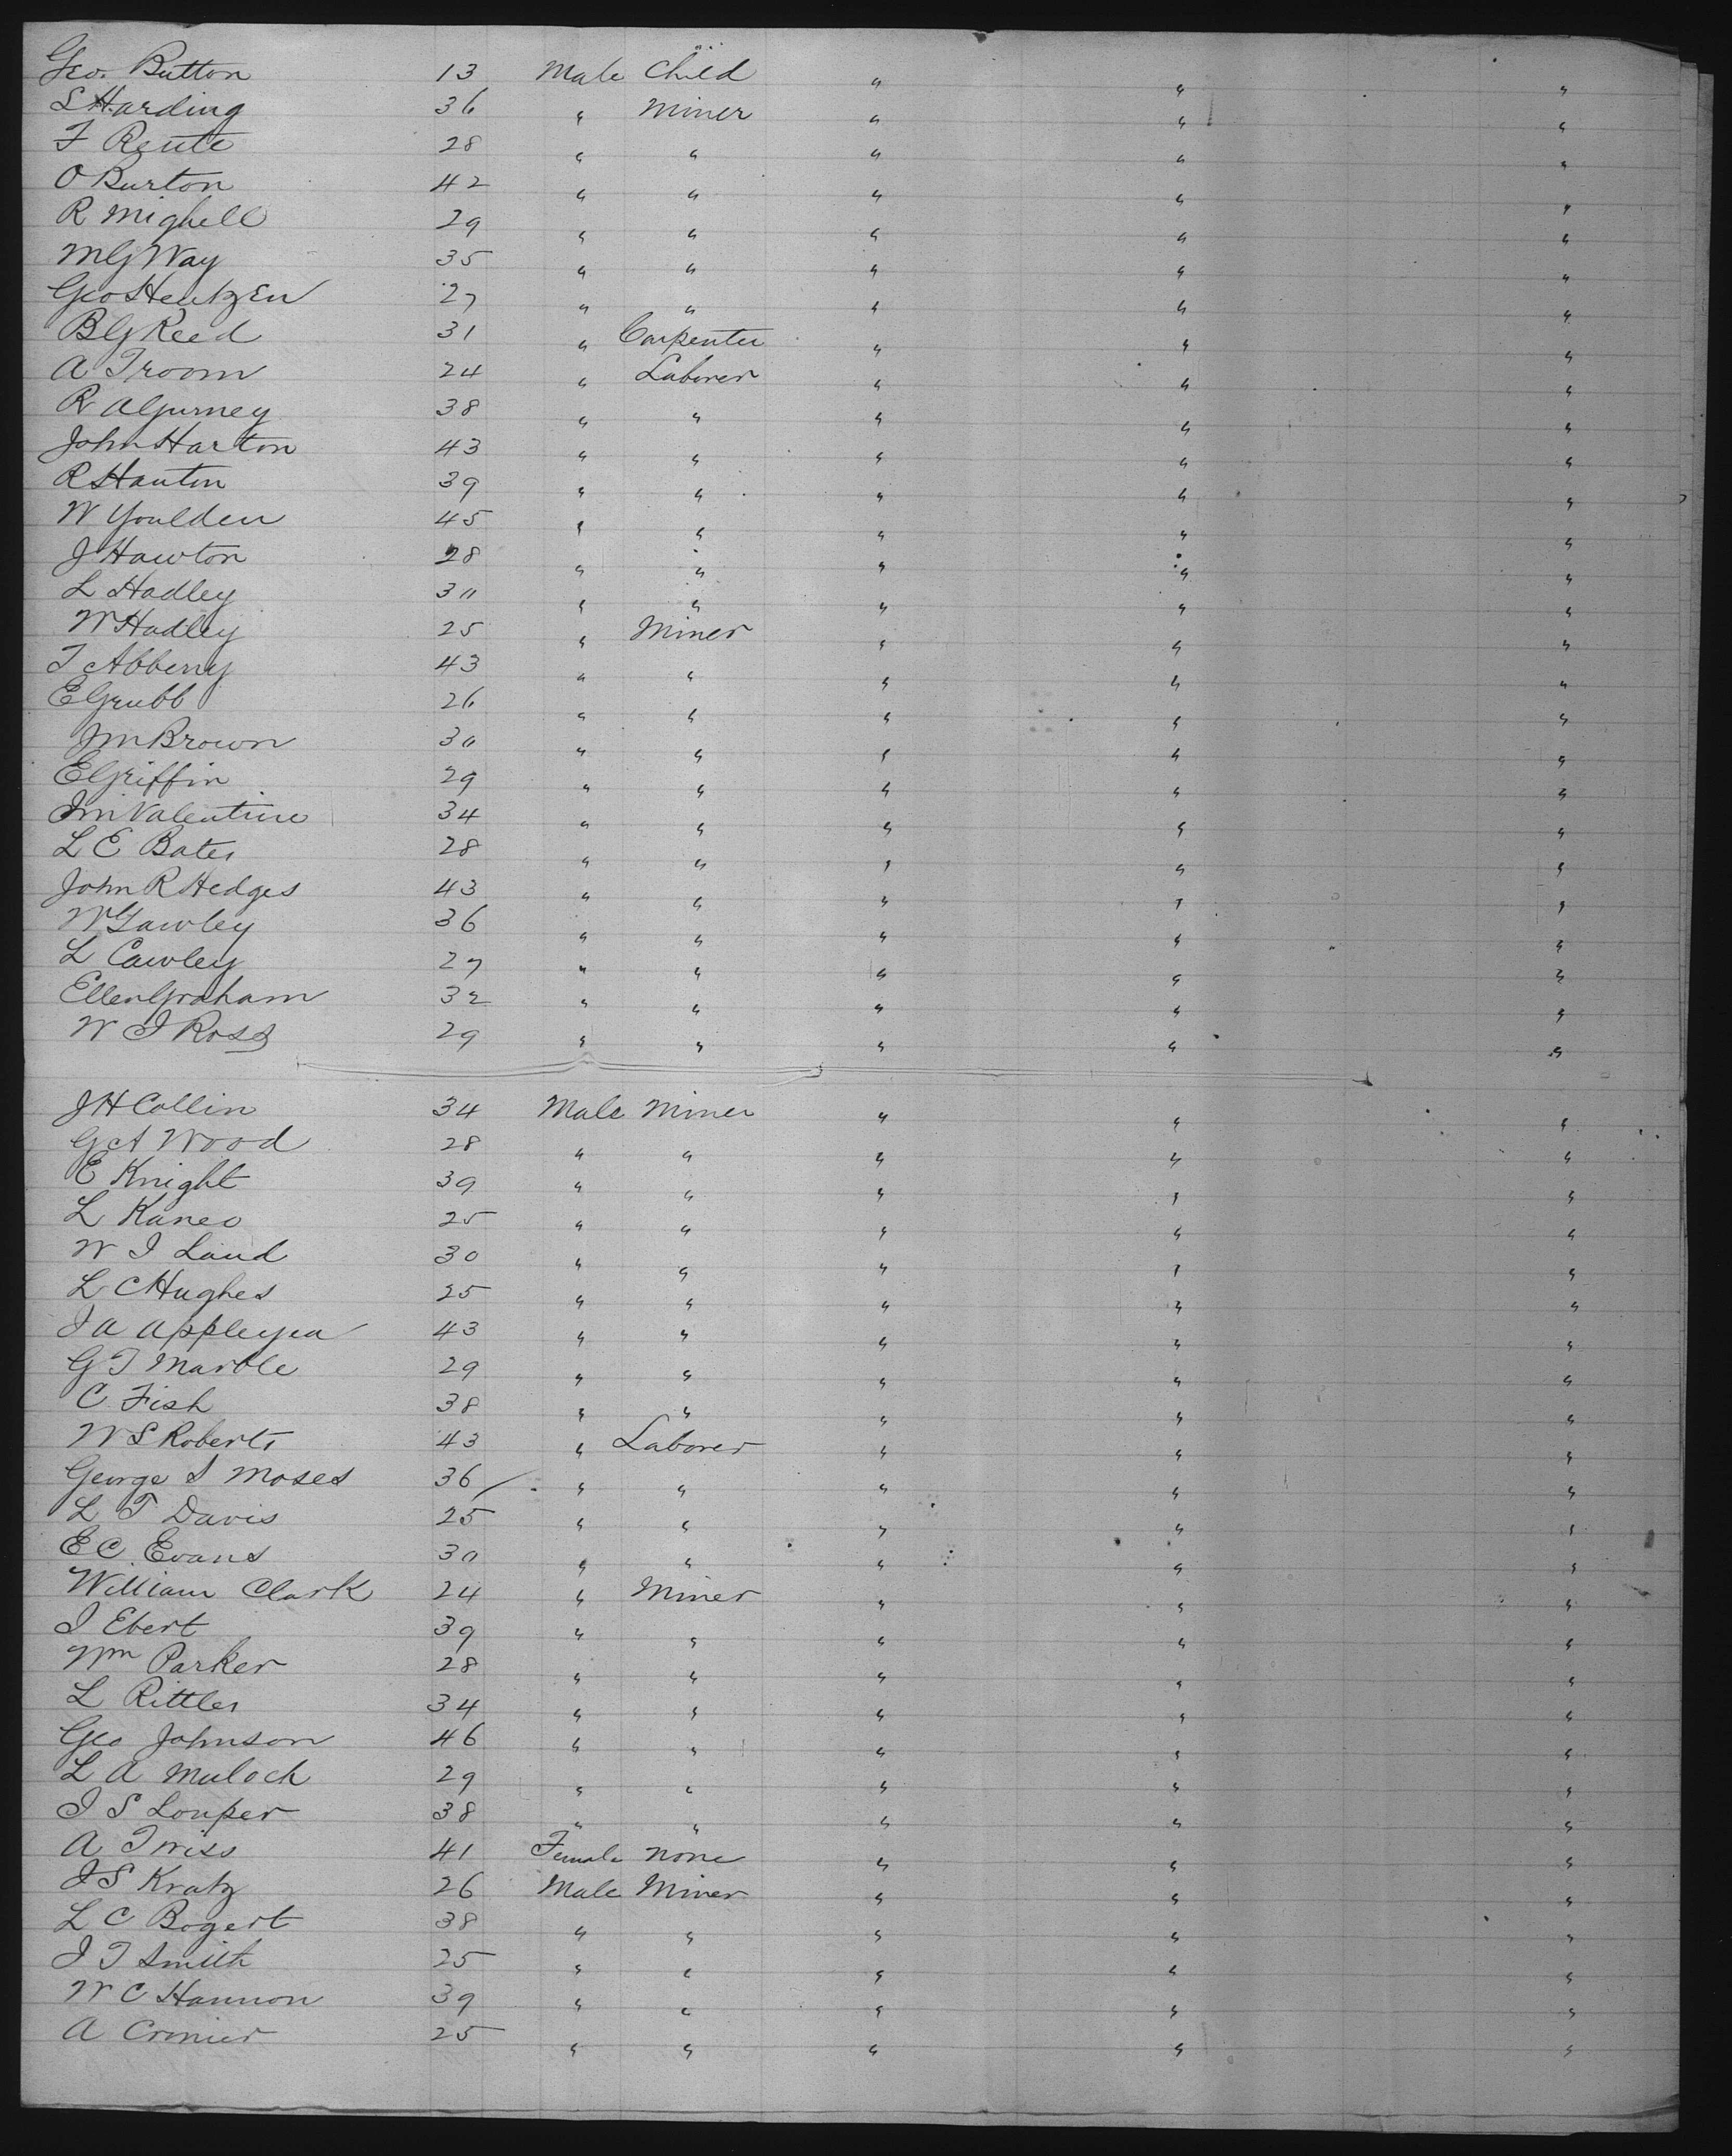 Geo. Button 13 Male Child " " "
S Harding 36 " Miner " " "
F Reute 28 " " " " "
O Burton 42 " " " " "
R Mighell 29 " " " " "
M G Way 35 " " " " "
Geo Hentzen 27 " " " " "
B G Reed 31 " Carpenter " " "
A Troom 24 " Laborer " " "
R A Gurney 38 " " " " "
John Harton 43 " " " " "
R Hanton 39 " " " " "
W Youlden 45 " " " " "
J Hawton 28 " " " " "
L Hadley 30 " " " " "
W Hadley 25 " Miner " " "
T Abbeny 43 " " " " "
E Grubb 26 " " " " "
Jm Brown 30 " " " " "
E Griffin 29 " " " " "
Jm Valentine 34 " " " " "
L E Bates 28 " " " " "
John R Hedges 43 " " " " "
W Gawley 36 " " " " "
L Cawley 27 " " " " "
Ellen Graham 32 " " " " "
W J Ross 29 " " " " "
J H Collin 34 Male Miner " " "
G A Wood 28 " " " " "
E Knight 39 " " " " "
L Kaneo 25 " " " " "
W I Laud 30 " " " " "
L C Hughes 25 " " " " "
J A Appleyea 43 " " " " "
G T Marble 29 " " " " "
C Fish 38 " " " " "
W S Roberts 43 " Laborer " " "
George S Moses 36 " " " " "
L T Davis 25 " " " " "
E C Evans 30 " " " " "
William Clark 24 " Miner " " "
J Ebert 39 " " " " "
Wm Parker 28 " " " " "
L Rittler 34 " " " " "
Geo Johnson 46 " " " " "
L A Muloch 29 " " " " "
J S Louper 38 " " " " "
A Twiss 41 Female None " " "
J S Kratz 26 Male Miner " " "
L C Bogert 38 " " " " "
J T Smith 25 " " " " "
W C Hannon 39 " " " " "
A Cronier 25 " " " " "